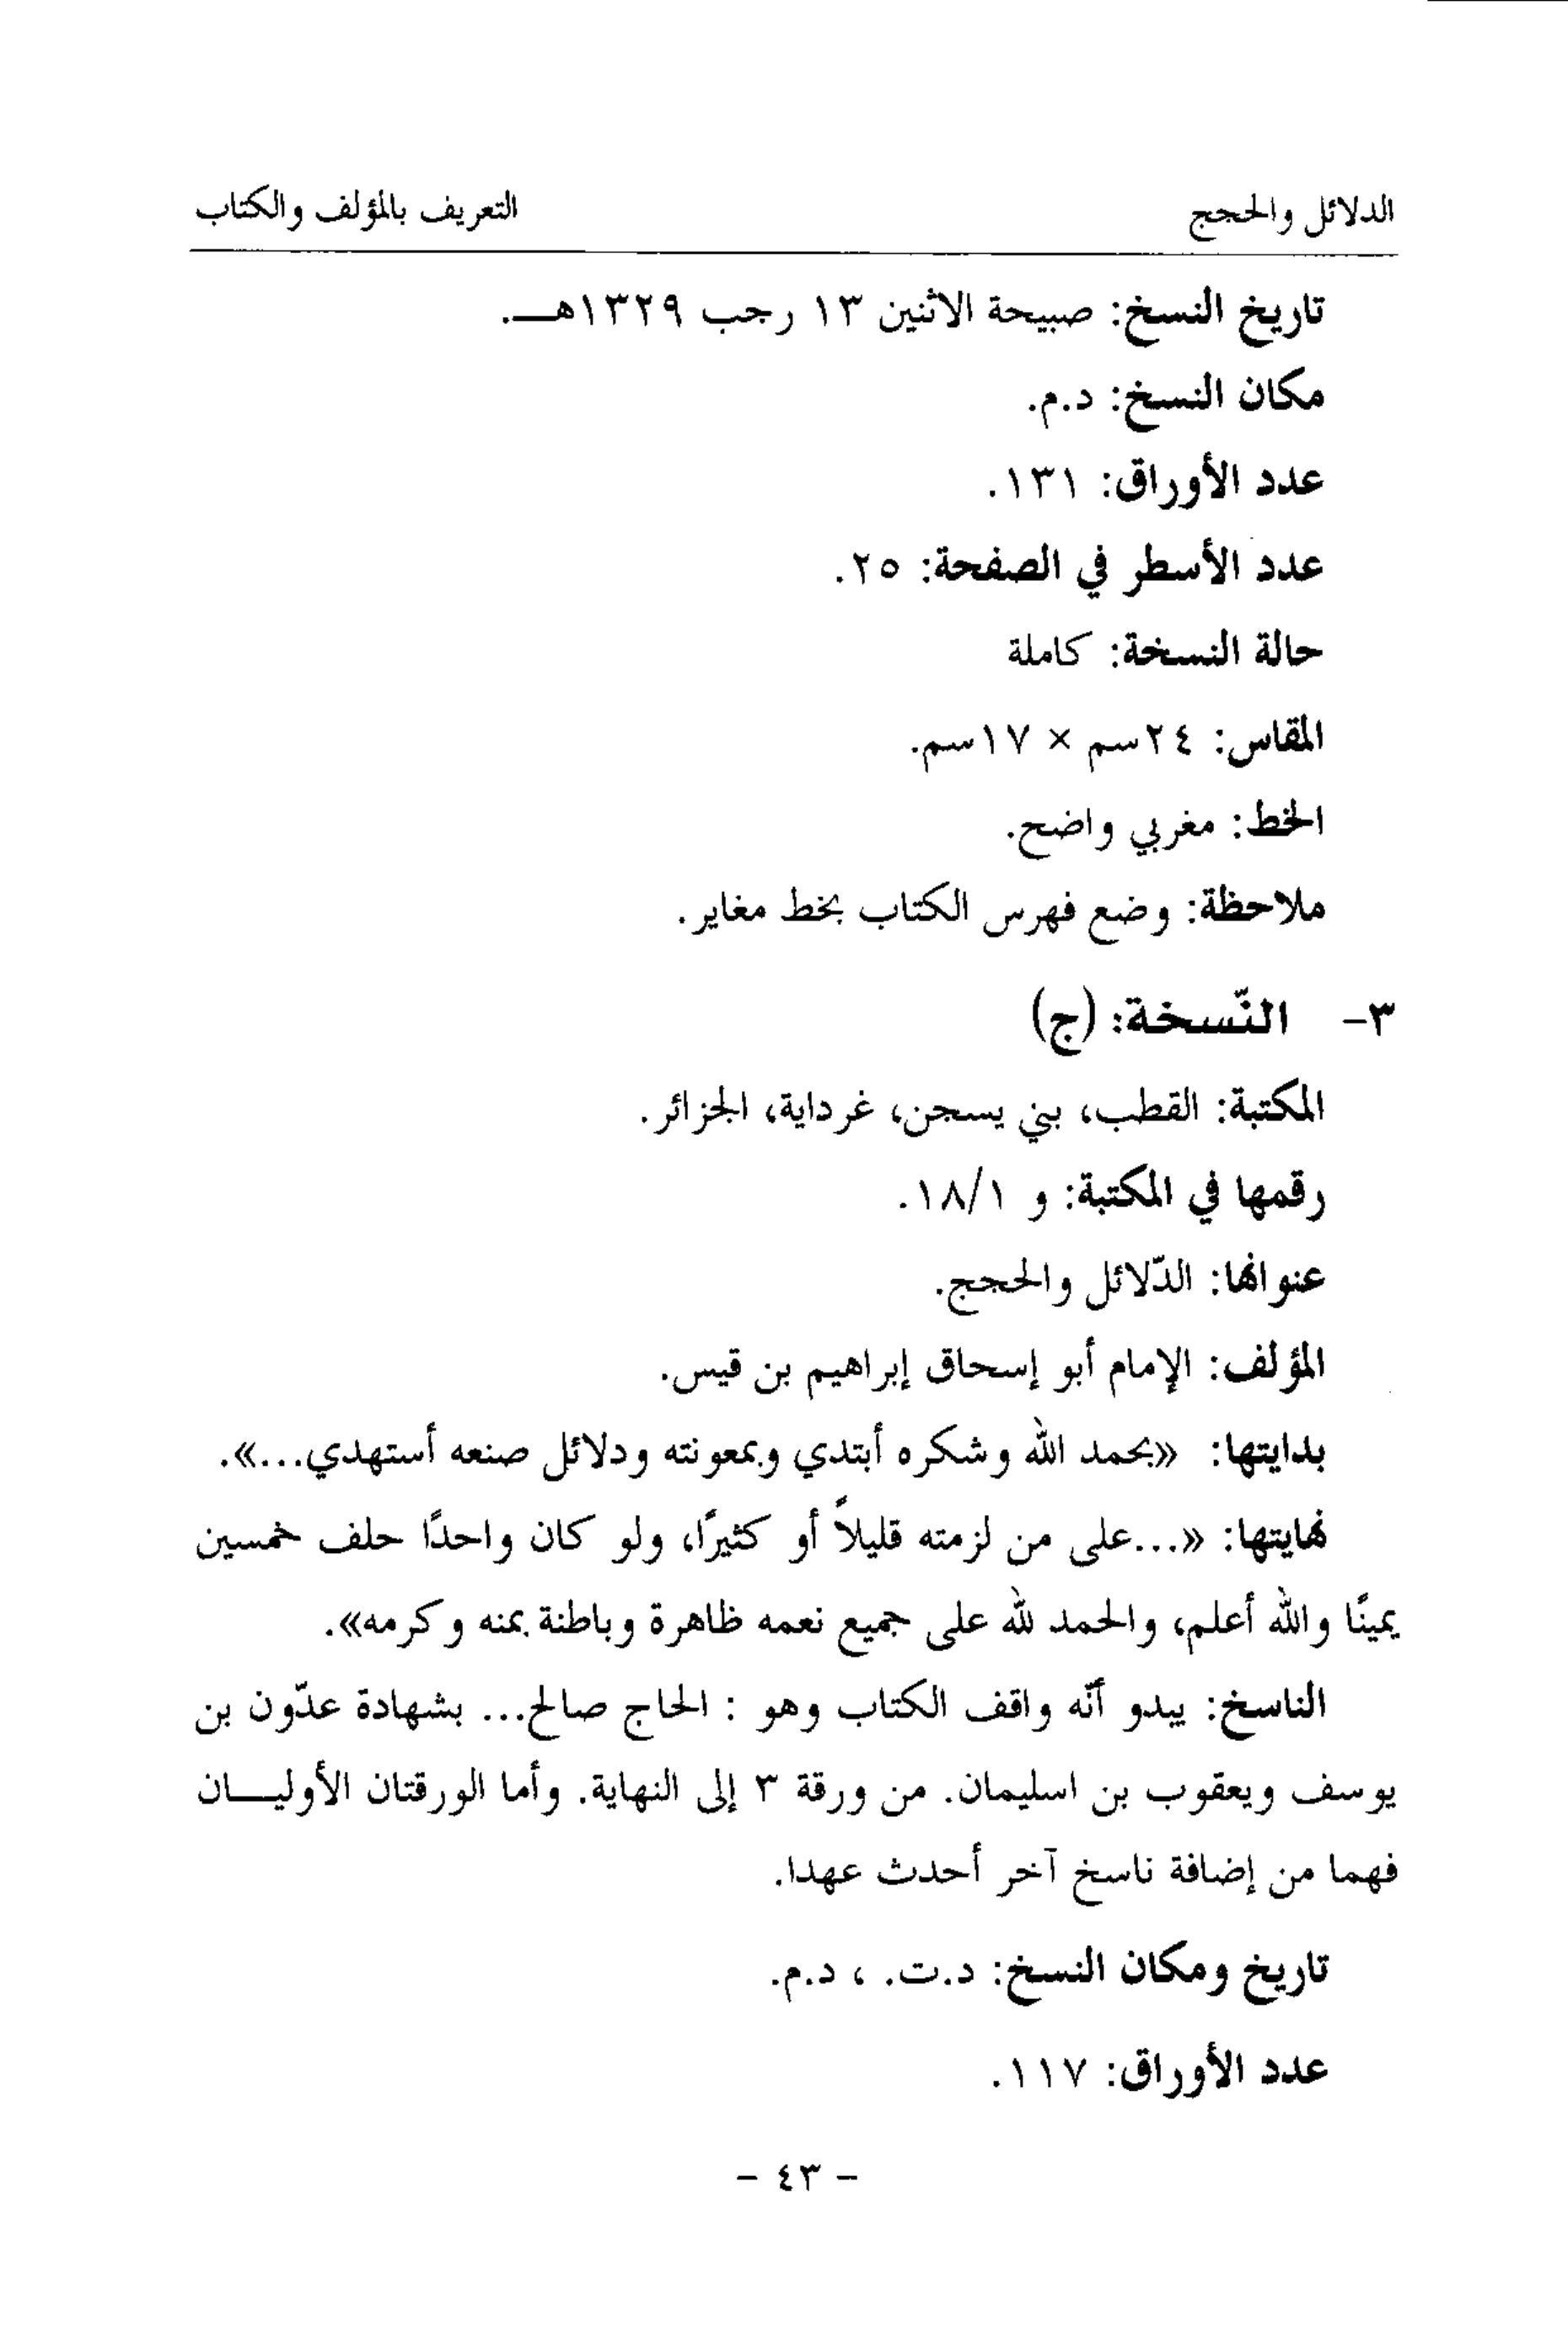 الدلائل والحجج
التعريف بالمؤلف والكتاب
تاريخ النسخ: صبيحة الاثنين ١٣ رجب ١٣٢٩هـــ.
مكان النسخ: د.م.
عدد الأوراق: ١٣١.
عدد الأسطر في الصفحة: ٢٥.
حالة النسخة: كاملة
المقاس: ٢٤سم × ١٧سم.
الخط: مغربي واضح.
ملاحظة: وضع فهرس الكتاب بخط مغاير.
٣- النّسخة: (ج)
المكتبة: القطب، بني يسجن، غرداية، الجزائر.
رقمها في المكتبة: و ١/١٨.
عنوانها: الدّلائل والحجج.
المؤلف: الإمام أبو إسحاق إبراهيم بن قيس.
بدايتها: «بحمد الله وشكره أبتدي وبمعونته ودلائل صنعه أستهدي...».
نهايتها: «...على من لزمته قليلاً أو كثيرًا، ولو كان واحدًا حلف خمسين
يمينًا والله أعلم، والحمد لله على جميع نعمه ظاهرة وباطنة بمنه وكرمه».
الناسخ: يبدو أنّه واقف الكتاب وهو : الحاج صالح... بشهادة عدّون بن
يوسف ويعقوب بن اسليمان. من ورقة ٣ إلى النهاية. وأما الورقتان الأوليـــان
فهما من إضافة ناسخ آخر أحدث عهدا.
تاريخ ومكان النسخ: د.ت. ، د.م.
عدد الأوراق: ١١٧.
- ٤٣ -